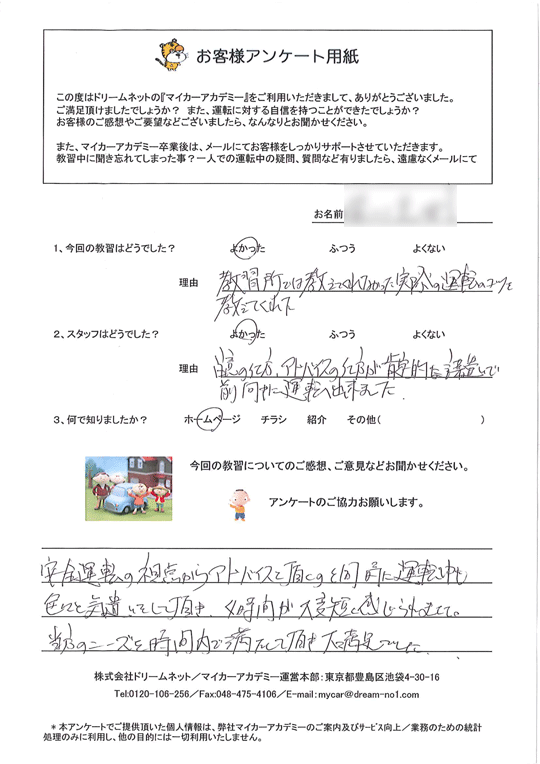 お客様アンケート用紙
この度はドリームネットの『マイカーアカデミー』をご利用いただきまして、ありがとうございました。
ご満足頂けましたでしょうか？ また、運転に対する自信を持つことができたでしょうか？
お客様のご感想やご要望などございましたら、なんなりとお聞かせください。
また、マイカーアカデミー卒業後は、メールにてお客様をしっかりサポートさせていただきます。
教習中に聞き忘れてしまった事？一人での運転中の疑問、質問など有りましたら、遠慮なくメールにて
お名前
1、今回の教習はどうでした？ よかった ふつう よくない
理由 教習所では教えてくれなかった実際の運転のコツを
教えてくれた
2、スタッフはどうでした？ よかった ふつう よくない
理由 注意の仕方、アドバイスの仕方が肯定的な言葉遣いで
前向きに運転出来ました。
3、何で知りましたか？ ホームページ チラシ 紹介 その他( )
今回の教習についてのご感想、ご意見などお聞かせください。
アンケートのご協力お願いします。
安全運転の視点からアドバイスして頂くのと同時に運転中も
色々と気遣いをして頂き、 時間が大変短く感じられました。
当方のニーズを時間内で満たして頂き大満足でした。
株式会社ドリームネット／マイカーアカデミー運営本部：東京都豊島区池袋4-30-16
Tel:0120-106-256／Fax:048-475-4106／E-mail:mycar@dream-no1.com
＊本アンケートでご提供頂いた個人情報は、弊社マイカーアカデミーのご案内及びサービス向上／業務のための統計
処理のみに利用し、他の目的には一切利用いたしません。